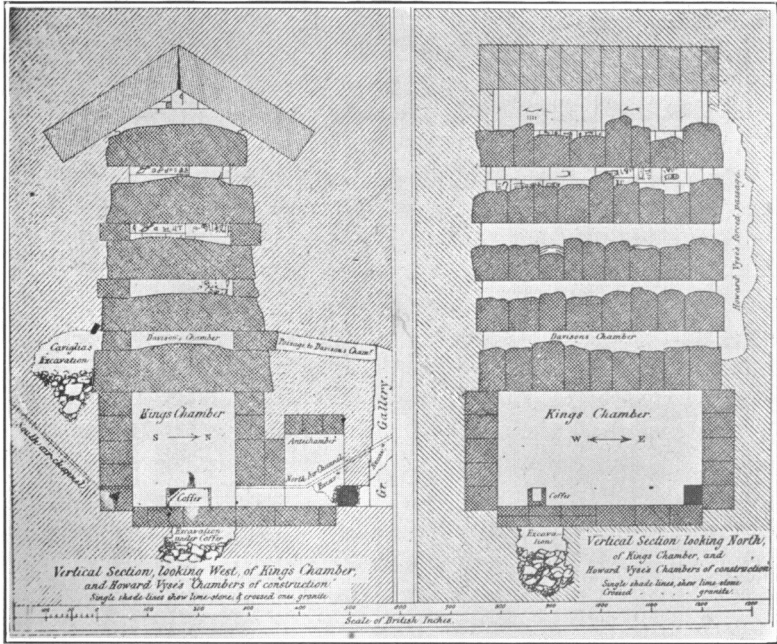 Davison's Chamber
Passage to Davison's Chamr.
Caviglia's
Excavation
Kings Chamber
S → N
Antechamber
North Air Channel
South air Channel
Gallery.
Gr.
Coffer
Excavation
under Coffer
Vertical Section, looking West, of Kings Chamber,
and Howard Vyse's Chambers of construction.
Single shade lines show lime-stone, & crossed ones granite
Howard Vyse's forced passage.
Davisons Chamber
Kings Chamber.
W ↔ E
Coffer
Excava-
tion
Vertical Section looking North,
of Kings Chamber, and
Howard Vyse's Chambers of construction
Single shade lines, show lime-stone
Crossed . . . . granite
0 100 200 300 400 500
Scale of British Inches.